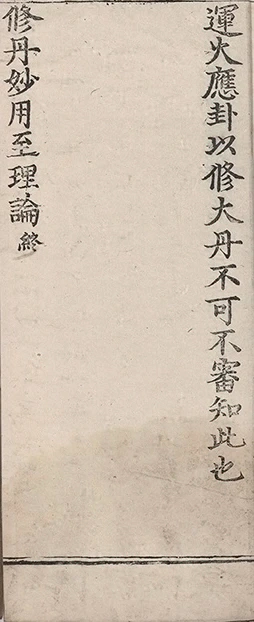 運火應卦以修大丹不可不審知此也
修丹妙用至理論終